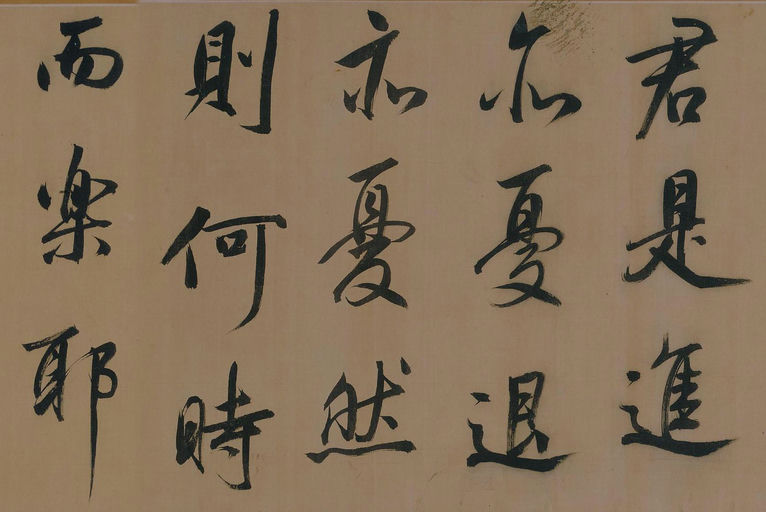 君是進
亦憂退
亦憂然
則何時
而樂耶